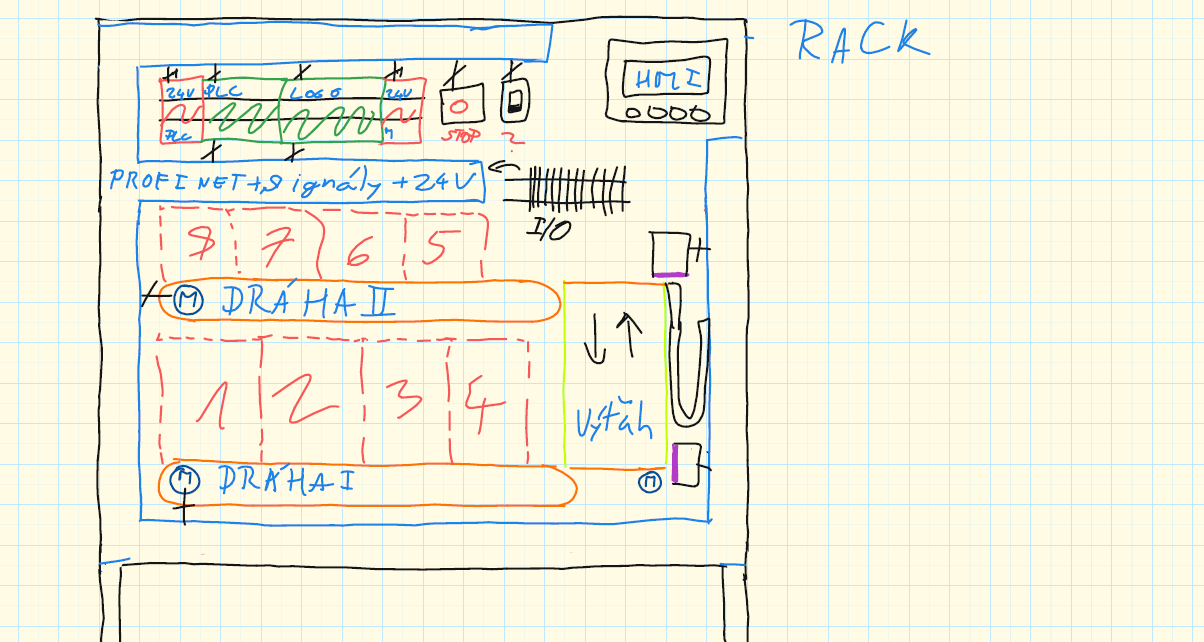 RACK
HMI
24V PLC LOGO 24V
PLC M
STOP ?
PROFINET + Signály + 24V
I/O
8 7 6 5
M DRÁHA II
1 2 3 4
Výtah
M DRÁHA I
M